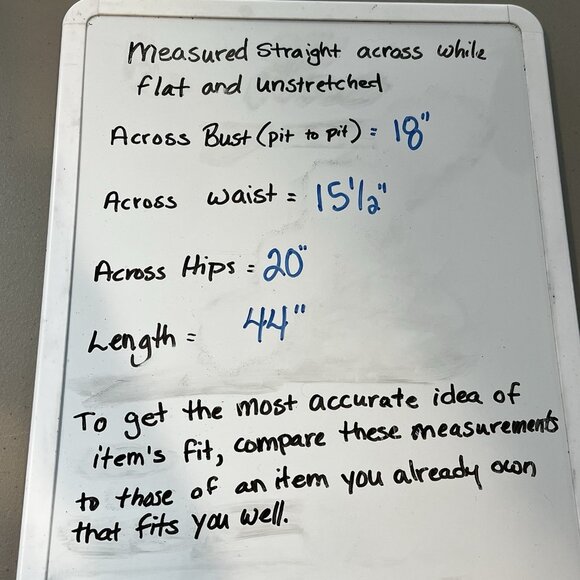 Measured straight across while
flat and unstretched
Across Bust (pit to pit) = 18"
Across waist = 15 1/2"
Across Hips = 20"
Length = 44"
To get the most accurate idea of
item's fit, compare these measurements
to those of an item you already own
that fits you well.